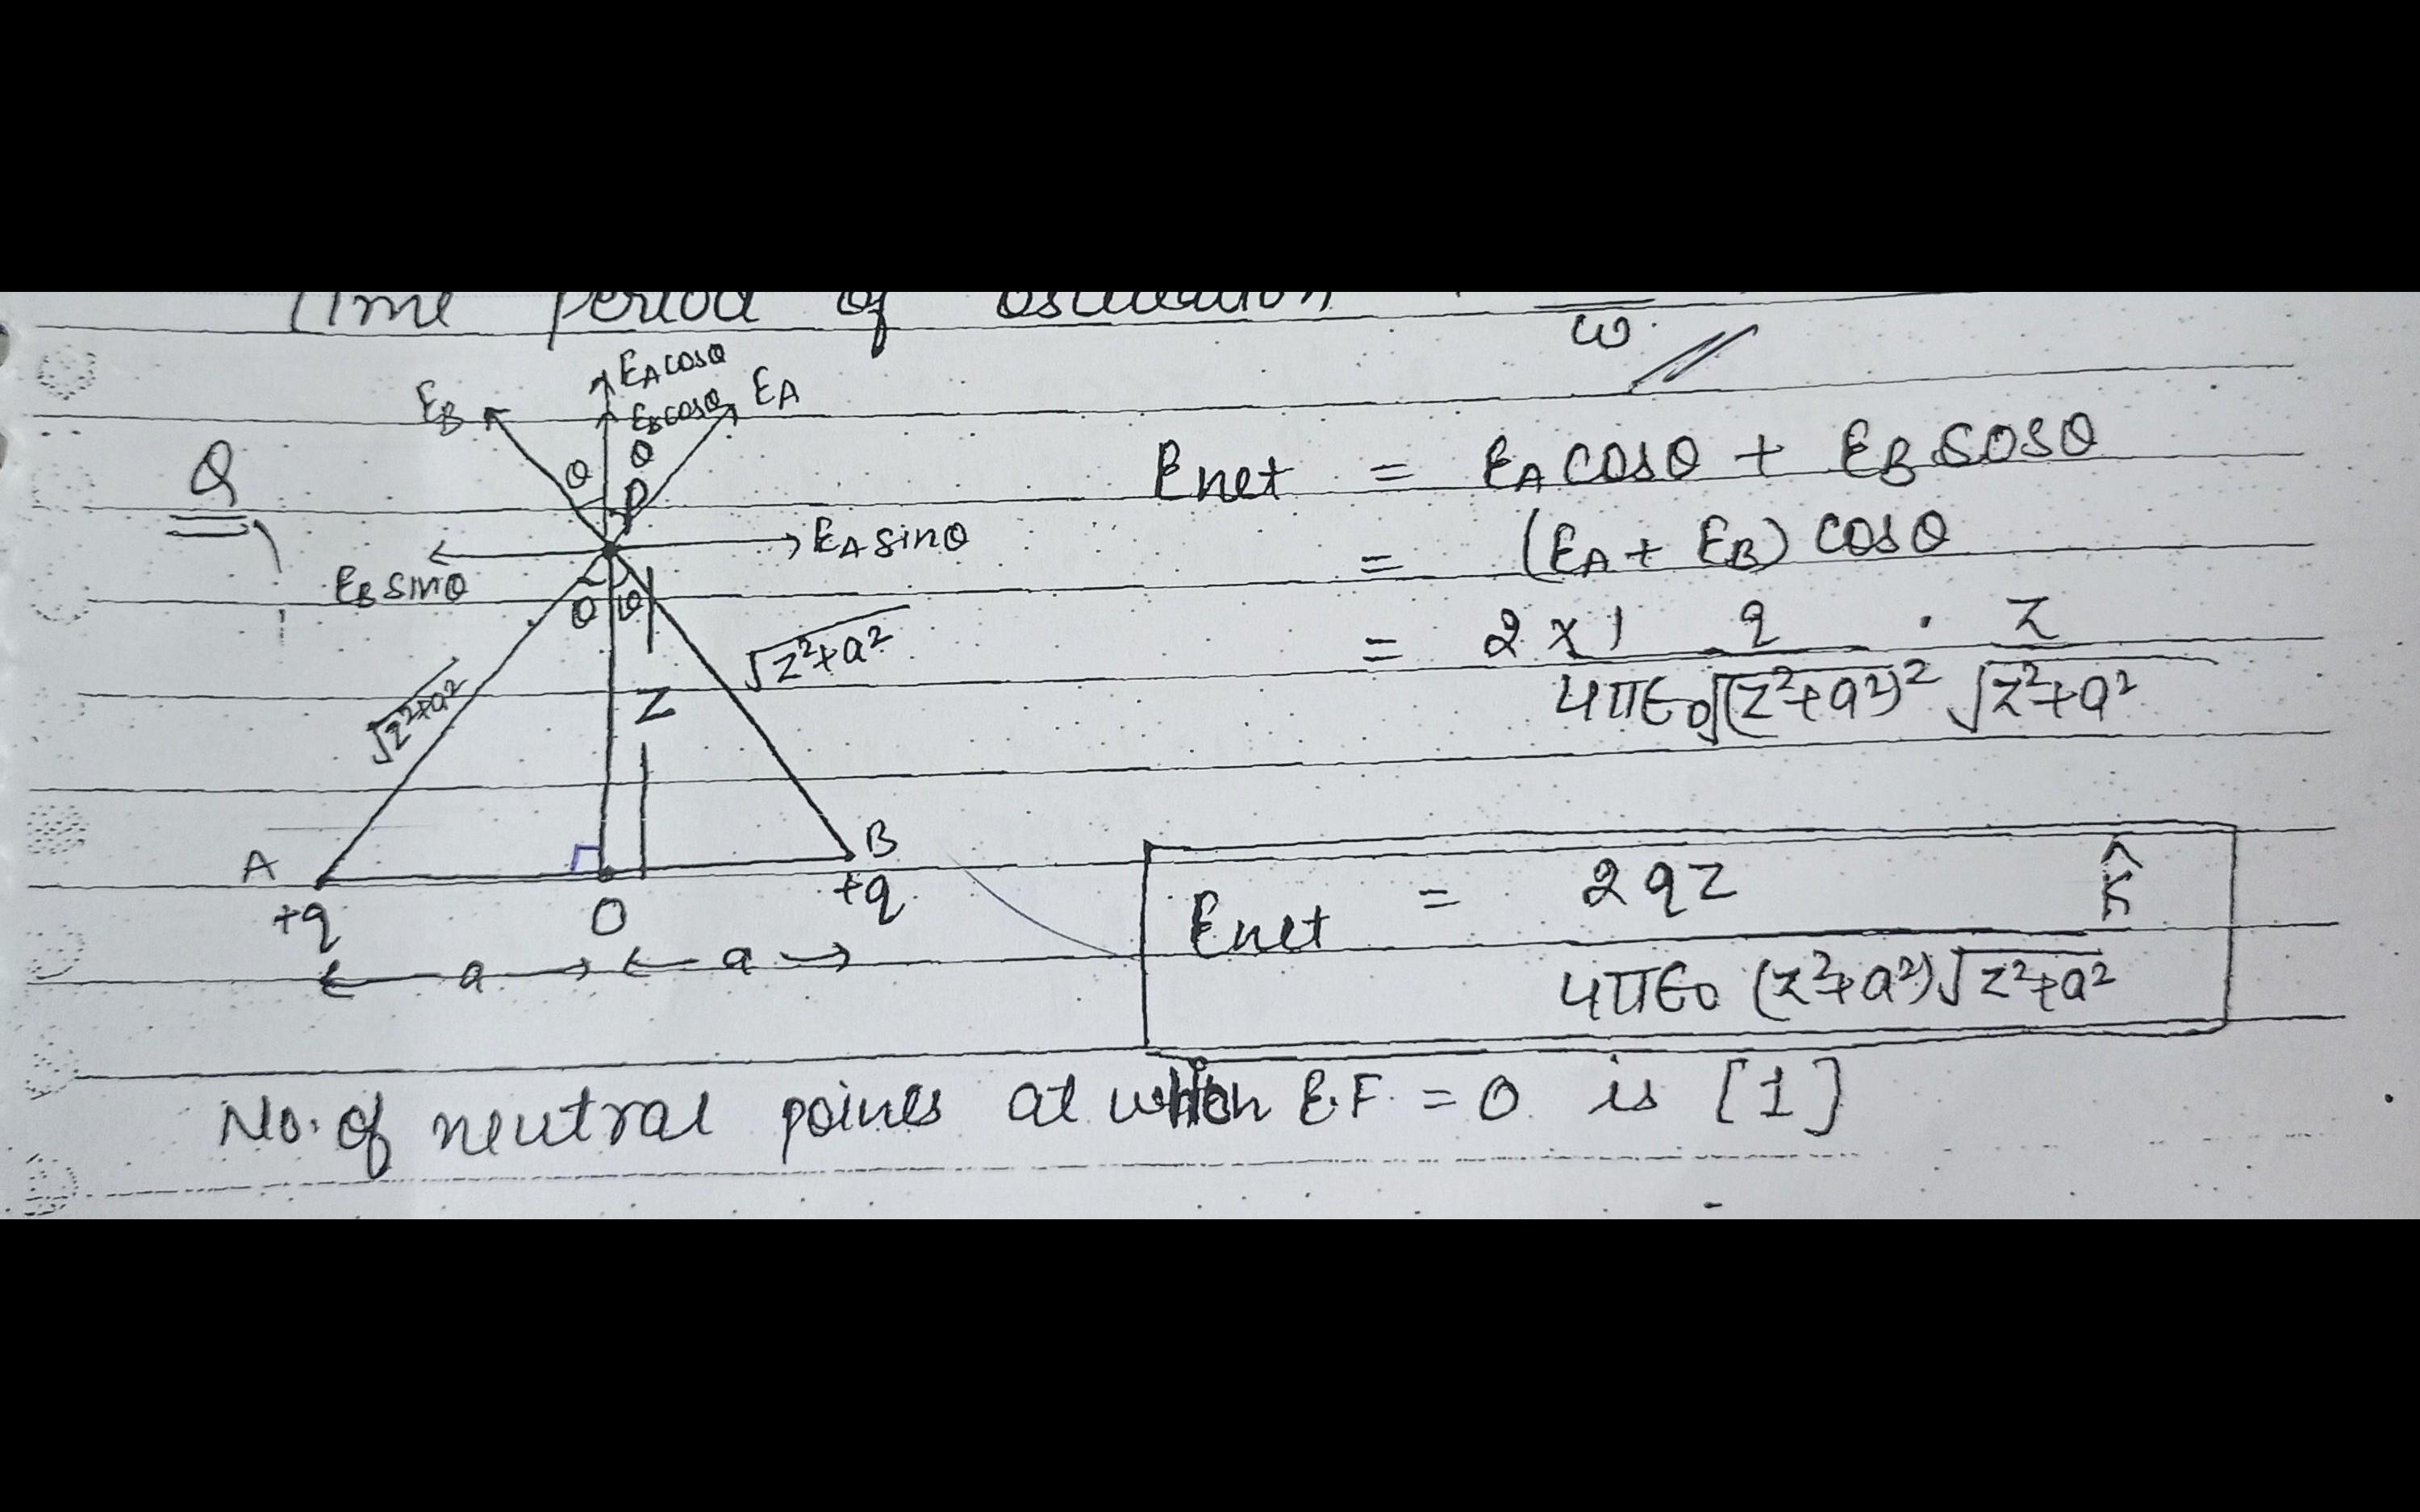 Time period of oscillation
ω
E_A cosθ
E_B cosθ
E_B
E_A
θ
θ
P
Q
E_B sinθ
E_A sinθ
θ
θ
√z²+a²
√z²+a²
z
A
B
+q
O
+q
a
a
Enet = E_A cosθ + E_B cosθ
= (E_A + E_B) cosθ
= 2 × 1 q . z
4πϵ₀ √(z²+a²)² √z²+a²
Enet = 2qz k̂
4πϵ₀ (z²+a²)√z²+a²
No. of neutral points at which E.F. = 0 is [1]